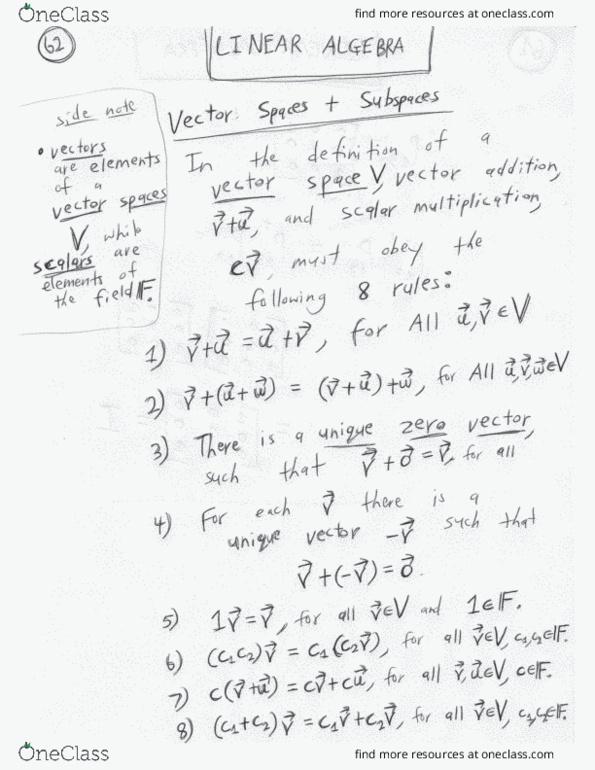 OneClass
find more resources at oneclass.com
62
LINEAR ALGEBRA
side note
• vectors
are elements
of a
vector spaces
V, while
scalars are
elements of
the field 𝔽.
Vector: Spaces + Subspaces
In the definition of a
vector space V, vector addition,
v⃗+u⃗, and scalar multiplication,
cv⃗, must obey the
following 8 rules:
1) v⃗+u⃗ = u⃗+v⃗, for All u⃗,v⃗∈V
2) v⃗+(u⃗+w⃗) = (v⃗+u⃗)+w⃗, for All u⃗,v⃗,w⃗∈V
3) There is a unique zero vector,
such that v⃗+o⃗=v⃗, for all
4) For each v⃗ there is a
unique vector -v⃗ such that
v⃗+(-v⃗)=o⃗.
5) 1v⃗=v⃗, for all v⃗∈V and 1∈𝔽.
6) (c₁c₂)v⃗ = c₁(c₂v⃗), for all v⃗∈V, c₁,c₂∈𝔽.
7) c(v⃗+u⃗)=cv⃗+cu⃗, for all v⃗,u⃗∈V, c∈𝔽.
8) (c₁+c₂)v⃗=c₁v⃗+c₂v⃗, for all v⃗∈V, c₁,c₂∈𝔽.
OneClass
find more resources at oneclass.com